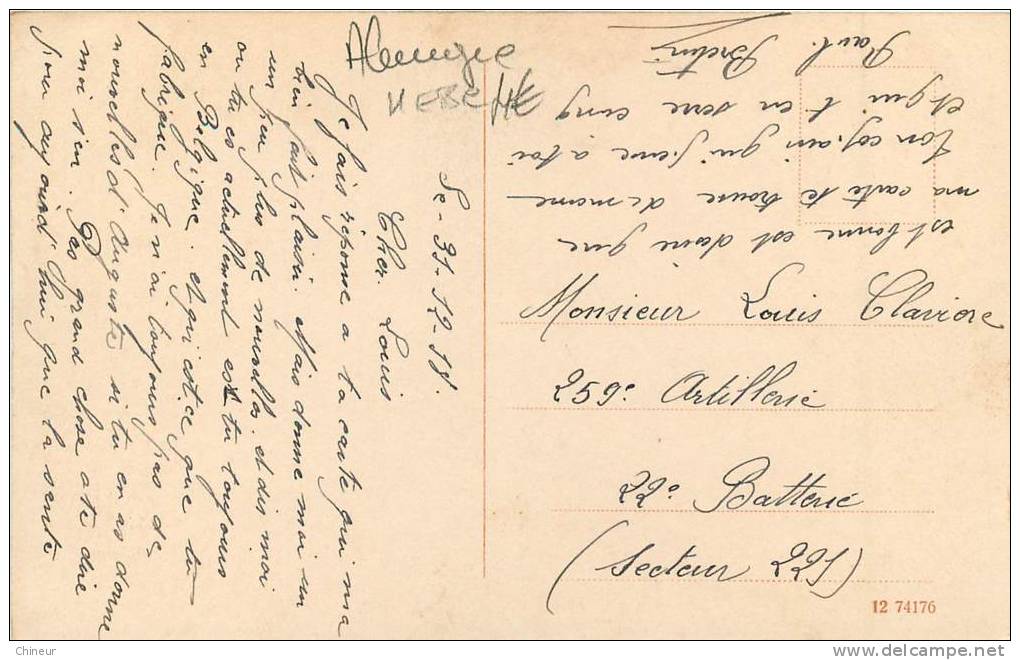 Le - 31-12-18.
Cher Louis
Je fais réponse a ta carte qui ma
bien fait plaisir. Mais donne moi un
un peu plus de nouvelles. et dis moi
ou tu es actuellement es tu toujours
en Belgique. et qu'est ce que tu
fabrique. Je n'ai toujours pas de
nouvelles d'Auguste si tu en as donne
moi s'en. Pas grand chose a te dire
pour aujourd'hui que la santé
est bonne est daire que
ma carte te trouve de meme
ton copain qui pense a toi
et qui t en serre cinq
Paul.
Allemagne
KEBEHE
Monsieur Louis Claviere
259e Artillerie
22e Batterie
(Secteur 221)
12 74176
Chineur
delcampe.net